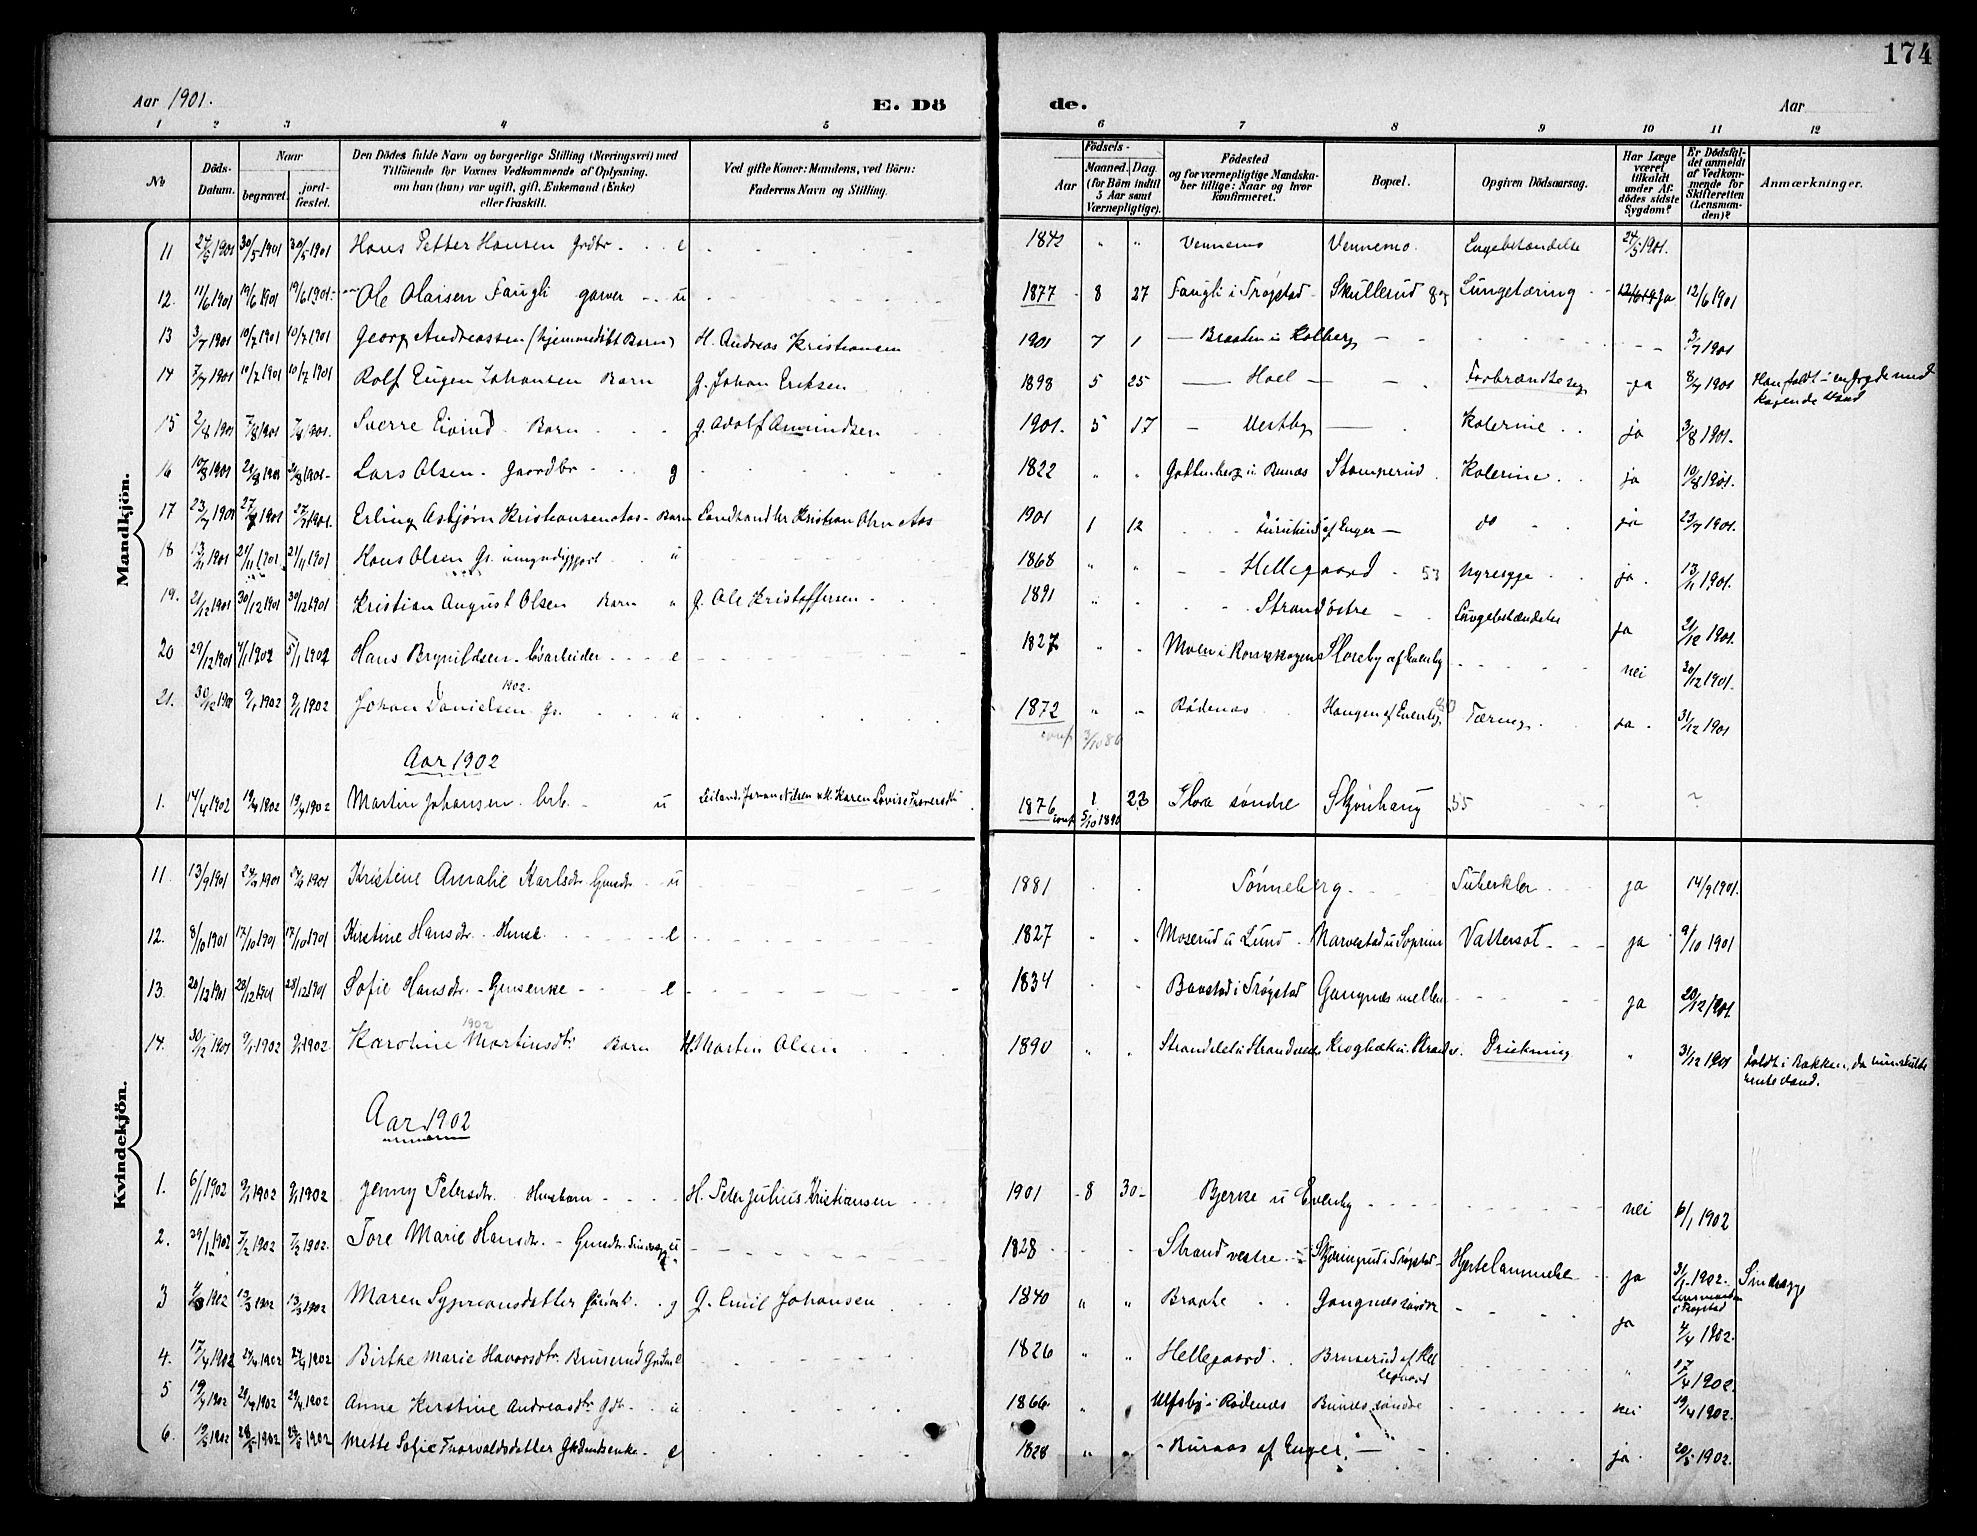 174
Aar 1901.
E. Dö
de.
Aar
1 2 3 4 5 6 7 8 9 10 11 12
No
Döds-Datum.
Naar
begravet.
jord-fæstet.
Den Dödes fulde Navn og borgerlige Stilling (Næringsvei) med
Tilföiende for Voxnes Vedkommende af Oplysning.
om han (hun) var ugift, gift, Enkemand (Enke)
eller fraskilt.
Ved gifte Koner: Mandens, ved Börn:
Faderens Navn og Stilling.
Födsels-
Aar
Maaned. Dag.
(for Börn indtil
5 Aar samt
Værnepligtige).
Födested
og for værnepligtige Mandska-
ber tillige: Naar og hvor
konfirmeret.
Bopæl.
Opgiven Dödsaarsag.
Har Læge
været
tilkaldt
under Af-
dödes sidste
Sygdom?
Er Dödsfal-
det anmeldt
af Vedkom-
mende for
Skifteretten
(Lensman-
den)?
Anmærkninger.
Mandkjön.
11 24/5 1901 30/5 1901 30/5 1901 Hans Petter Hansen Grdbr. e 1842 " " Vennemo Vennemo. 24/5 1901.
12. 11/6 1901 19/6 1901 19/6 1901 Ole Olaisen Faugli garver u 1877 8 27 Faugli i Trøgstad Skullerud Lungetæring ja 12/6 1901
13 3/7 1901 10/7 1901 10/7 1901 Georg Andreassen (hjemmedøbt Barn) H. Andreas Kristiansen 1901 7 1 Braaten u Kolberg 3/7 1901
14 7/7 1901 10/7 1901 10/7 1901 Rolf Eugen Johansen Barn G. Johan Eriksen 1898 5 25 Hoel ja 8/7 1901 Han faldt i en Gryde med
kogende Vand
15 2/8 1901 7/8 1901 7/8 1901. Sverre Eivind Barn G. Adolf Amundsen 1901. 5 17 Vestby Kolerine ja 3/8 1901.
16 10/8 1901 21/8 1901 21/8 1901 Lars Olsen Gaardbr g 1822 " " Stomperud Kolerine ja 10/8 1901.
17 23/7 1901 27/7 1901 27/7 1901. Erling Asbjørn Kristiansen Aas Barn Landhandler Kristian Olsen Aas 1901 1 12 af Enger do ja 23/7 1901.
18 13/11 1901 21/11 1901 21/11 1901 Hans Olsen Gs. umyndiggjort u 1868 " " Hellegaard 53 Nyresyge ja. 13/11 1901.
19. 21/12 1901 30/12 1901 30/12 1901 Kristian August Olsen Barn " G. Ole Kristoffersen 1891 " " Strand østre Lungebetændelse ja 21/12 1901.
20 29/12 1901 4/1 1902 5/1 1902 Hans Brynildsen Løsarbeider e 1827 " " Sloreby af Evenby nei 30/12 1901.
21. 30/12 1901 9/1 1902 9/1 1902 Johan Danielsen Gs. 1902. " 1872 " " Rødenæs Haugen af Evenby Tæring ja. 31/12 1901
conf 3/10 86
Aar 1902
1. 14/4 1902 19/4 1902 19/4 1902 Martin Johansen Arb. u Leiland. Johan Nilsen og K. Karen Lovise 1876 1 23 Flora søndre Skjønhaug 55 ?
conf 5/10 1890
Kvindekjön.
11. 13/9 1901 1901 1901 Kristine Amalie Karlsdr Gmsdr u 1881 Tønneberg Tuberkler ja 14/9 1901.
12. 8/10 1901 17/10 1901 17/10 1901 Kirstine Hansdr. e 1827 " " Moserud u Lund Vattersot ja 9/10 1901
13. 20/12 1901 28/12 1901 28/12 1901 Sofie Hansdr. Gmsenke e 1834 Baastad i Trøgstad Gangnæs mellem ja 20/12 1901.
14. 30/12 1901 9/1 1902 9/1 1902 Karoline Martinsdtr 1902 Barn H. Martin Olsen 1890 " " Drukning " 31/12 1901 Faldt i Bækken, da hun skulde
hente Vand.
Aar 1902
1. 6/1 1902 9/1 1902 9/1 1902 Jenny Petersdr. Husbarn H. Peter Julius Kristiansen 1901 8 30 Bjerke u Evenby nei 6/1 1902
2. 29/1 1902 7/2 1902 7/2 1902. Tore Marie Hansdr. Gmsdr. Sindssyg u 1828 Strand vestre Hjertelammelse ja 31/1 1902. Sindssyge
Lensmanden
i Trøgstad
3 1902 13/3 1902 13/3 1902 Maren Sypriansdatter g G. Emil Johansen 1840 " " Braate Gangnæs søndre ja 4/4 1902.
4. 17/4 1902 24/4 1902 24/4 1902 Birthe Marie Havorsdtr. Bruserud e 1826 " " Hellegaard Bruserud af Hel-
legaard " 17/4 1902.
5 19/4 1902 29/4 1902 29/4 1902 Anne Kirstine Andreasdtr Gdr. u 1866 " Ulfsby i Rødenæs Bunæs søndre nei 19/4 1902.
6. 19/5 1902 28/5 1902 28/5 1902 Mette Sofie Thorvaldsdatter Gaardmandsenke e 1828 " " Buraas af Enger ja. 20/5 1902.